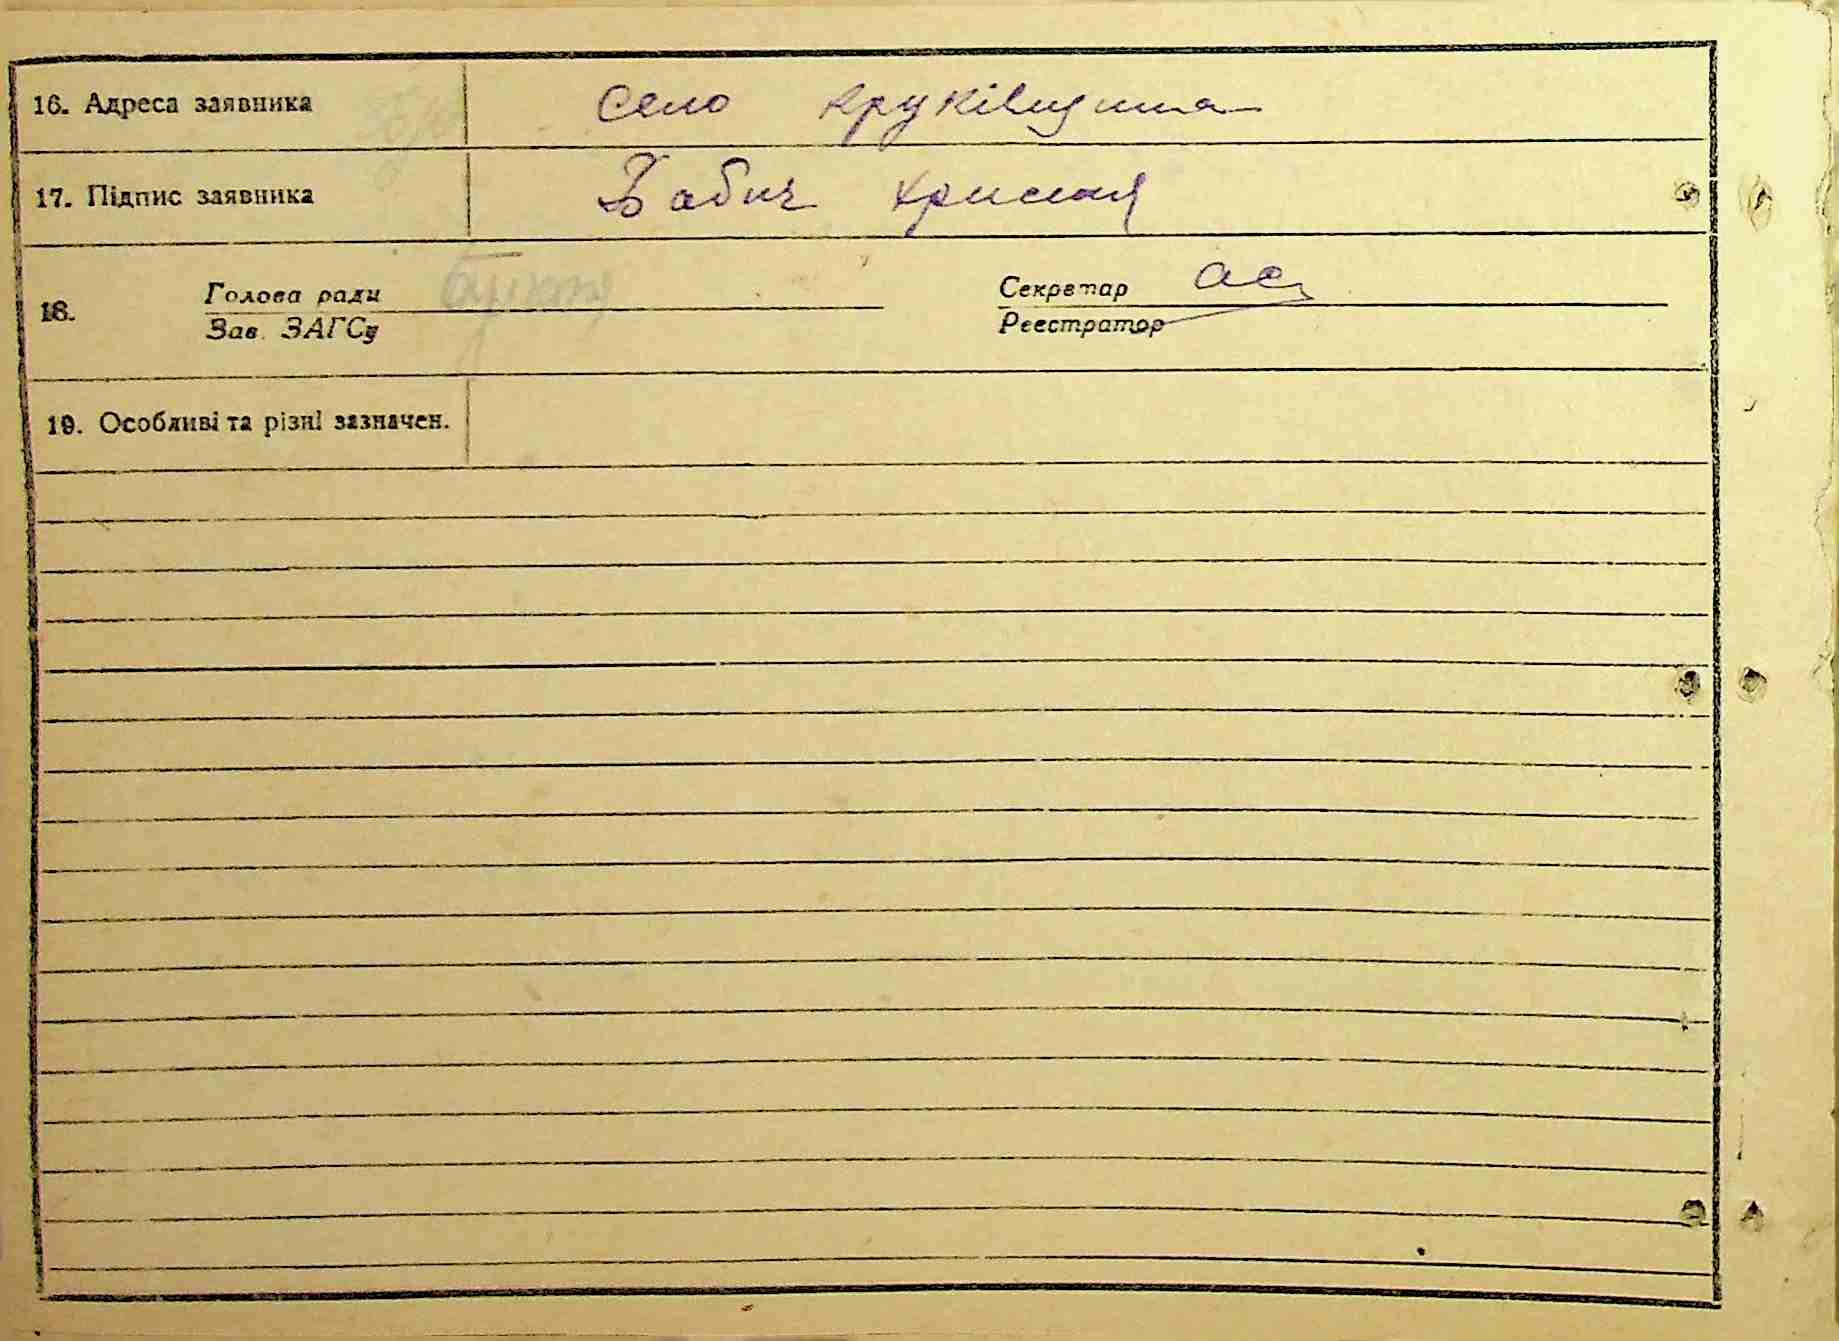 16. Адреса заявника село Круківщина
17. Підпис заявника Бабич
18. Голова ради Секретар
Зав. ЗАГСу Реєстратор
19. Особливі та різні зазначен.